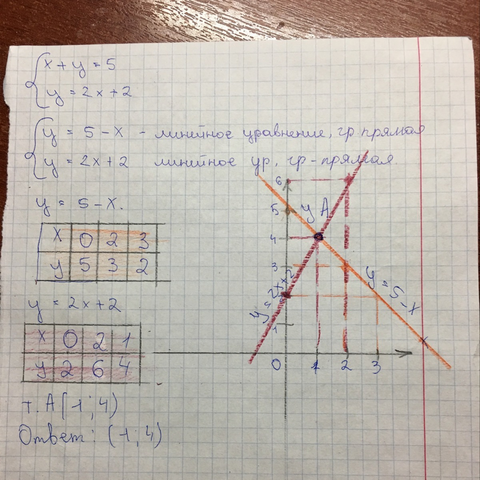 x + y = 5
y = 2x + 2
y = 5 - x - линейное уравнение, гр прямая
y = 2x + 2 линейное ур, гр - прямая
y = 5 - x.
x 0 2 3
y 5 3 2
y = 2x + 2
x 0 2 1
y 2 6 4
т. А (1; 4)
Ответ: (1; 4)
6
5
y A
4
3
y = 2x + 2
y = 5 - x
1
0 1 2 3
x